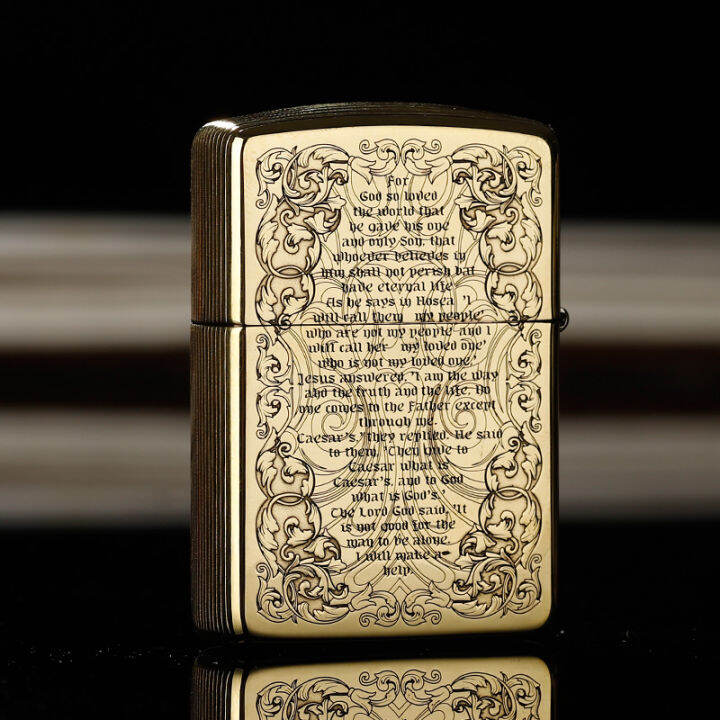 For
God so loved
the world that
he gave his one
and only Son, that
whoever believes in
him shall not perish but
have eternal life.
As he says in Hosea. "I
will call them 'my people'
who are not my people. and I
will call her 'my loved one'
who is not my loved one,"
Jesus answered, "I am the way
and the truth and the life. No
one comes to the Father except
through me.
Caesar's," they replied. He said
to them, "Then give to
Caesar what is
Caesar's, and to God
what is God's."
The Lord God said, "It
is not good for the
man to be alone.
I will make a
help.